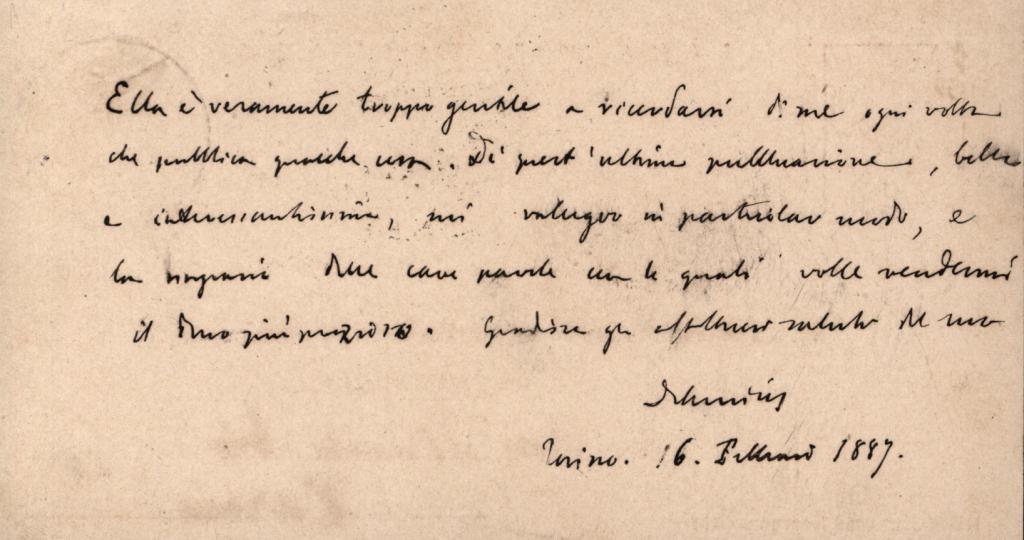 Ella è veramente troppo gentile a ricordarsi di me ogni volta
che pubblica qualche cosa. Di quest'ultima pubblicazione, bella
e interessantissima, mi in particolar modo, e
la ringrazio delle care parole con le quali volle rendermi
il dono più prezioso. Gradisca gli affettuosi saluti del suo
Torino. 16. Febbraio 1887.